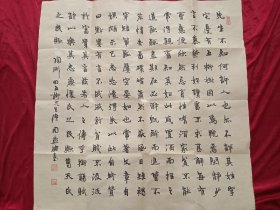 先生不知何許人也亦不詳其姓字
宅邊有五柳樹因以為號焉閑靜少
言不慕榮利好讀書不求甚解每有
會意便欣然忘食性嗜酒家貧不能
常得親舊知其如此或置酒而招之
造飲輒盡期在必醉既醉而退曾不
吝情去留環堵蕭然不蔽風日短褐
穿結簞瓢屢空晏如也常著文章自
娛頗示己志忘懷得失以此自終贊
曰黔婁之妻有言不戚戚於貧賤不汲汲
於富貴其言茲若人之儔乎銜觴賦
詩以樂其志無懷氏之民歟葛天氏
之民歟 陶淵明五柳先生傳